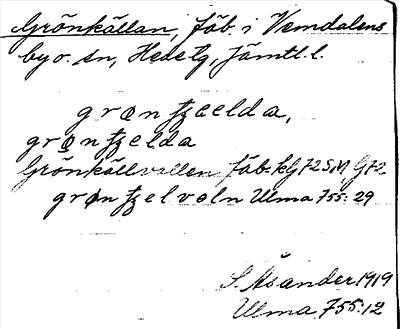 Grönkällan, fäb. i Vemdalens
by o. sn, Hede tg, Jämtl. l.
grøntʃælda,
grøntʃelda
Grönkällvallen fäb. kG72SM, G72
grøntʃelvoln Ulma 755:29
S. Åsander 1919
Ulma 755:12